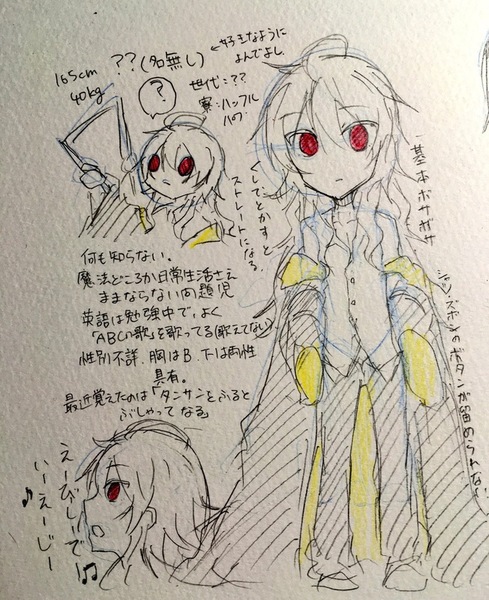 ??(名無し)
←好きなように
よんでよし。
165cm
40kg
世代:??
寮:ハッフル
パフ。
?
くしでとかすと
ストレートになる。
基本ボサボサ
シャツ・ズボンのボタンが留められない
何も知らない。
魔法どころか日常生活さえ
ままならない問題児
英語は勉強中で、よく
「ABCの歌」を歌ってる(歌えてない)
性別不詳、胸はB、下は両性
具有。
最近覚えたのは「タンサンをふると
ぶしゃってなる」
えーびしーで
いーえーじー